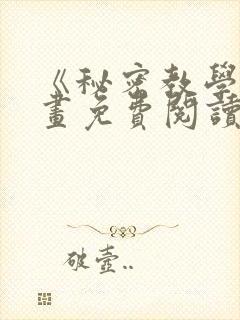 《秘密教學
畫免費閱讀
破壺..